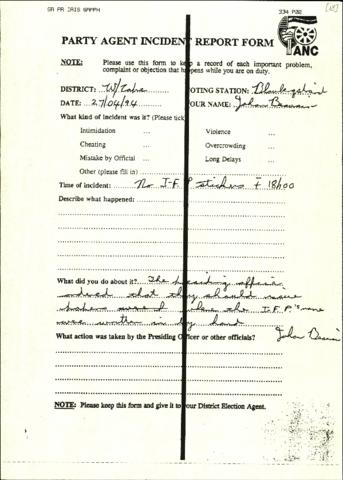 334 P02
PARTY AGENT INCIDENT REPORT FORM
ANC
NOTE: Please use this form to keep a record of each important problem,
complaint or objection that happens while you are on duty.
DISTRICT: W/ VOTING STATION:
DATE: 27/04/94 YOUR NAME: John
What kind of incident was it? (Please tick)
Intimidation ... Violence ...
Cheating ... Overcrowding ...
Mistake by Official ... Long Delays ...
Other (please fill in)
Time of incident: No I-F P stickers ± 18h00
Describe what happened:
What did you do about it? The presiding officer
ordered that they should
I.F.P.'s name
was written in by hand
What action was taken by the Presiding Officer or other officials? John
NOTE: Please keep this form and give it to your District Election Agent.